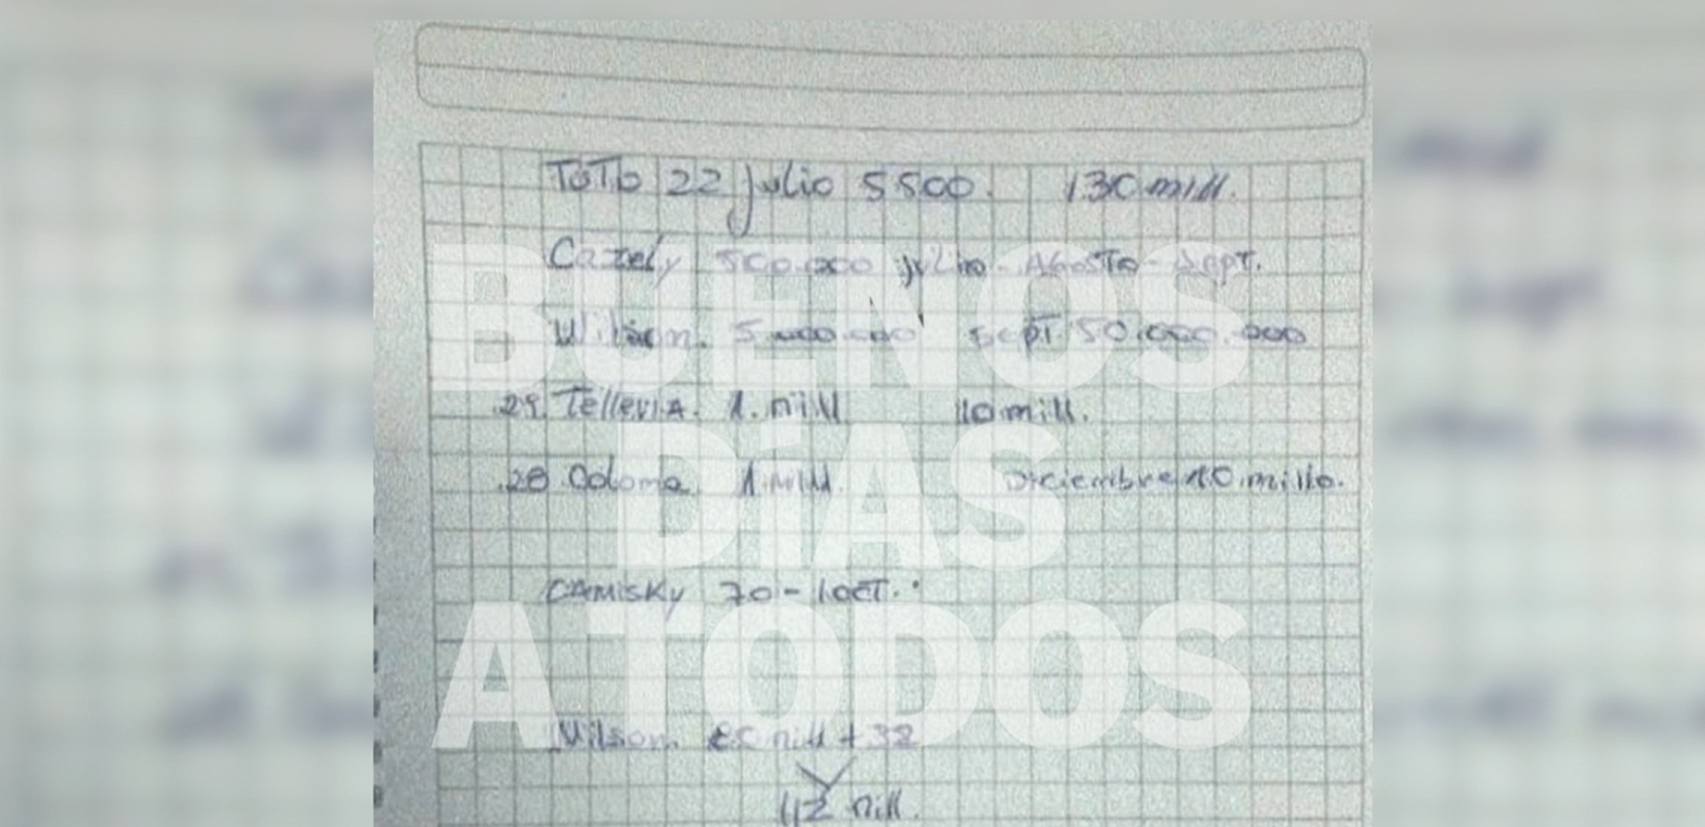 ToTo 22 julio 5500. 130 mill.
Cazely 500.000 julio - Agosto - Sept.
Wilson. 5.000.000 sept. 50.000.000
29. Telleria. 1. mill 10 mill.
28 Coloma 1 mill. Diciembre 10 millo.
CAMISKY 70 - 1 OCT.
Wilson. mill + 32
42 mill.
BUENOS
DÍAS
A TODOS